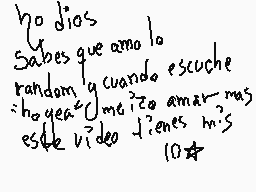 no dios
sabes que amo lo
random y cuando escuche
"hogea" me izo amar mas
este video tienes mis
10☆